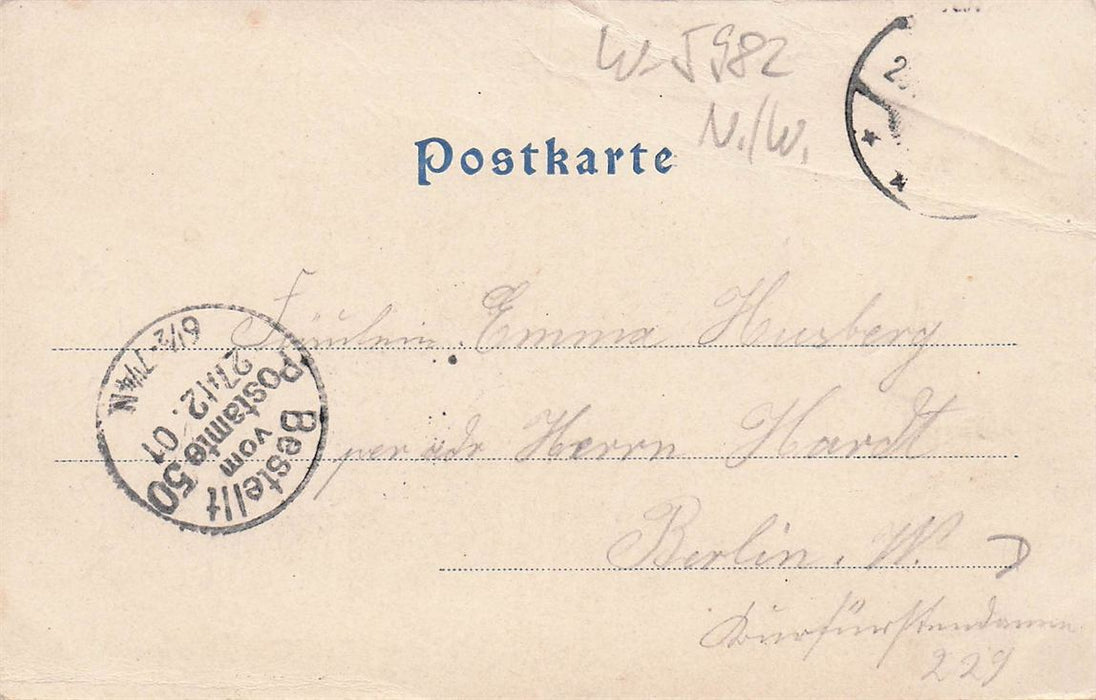 W. 5982
N./W.
Postkarte
Fräulein Emma
per adr Herrn Hardt
Berlin. W.
Kurfürstendamm
229
Bestellt
vom
Postamte 50
27/12. 01
6½-7¼N